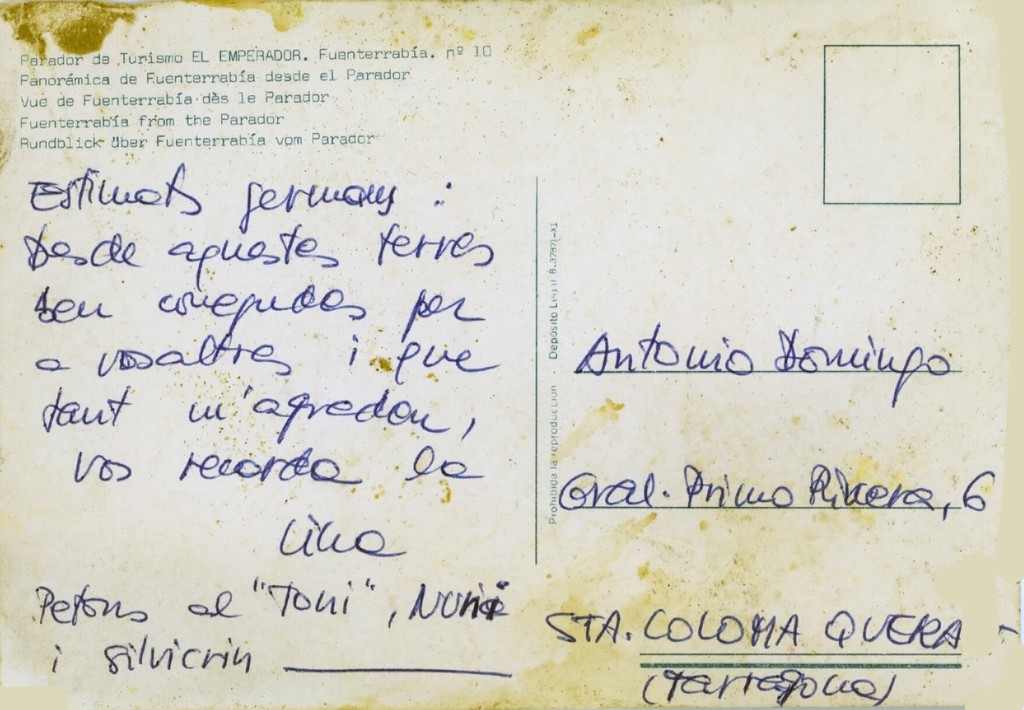 Parador de Turismo EL EMPERADOR. Fuenterrabía. nº 10
Panorámica de Fuenterrabía desde el Parador
Vue de Fuenterrabía dès le Parador
Fuenterrabía from the Parador
Rundblick über Fuenterrabía vom Parador
Estimats germans :
Desde aquestes terres
ben conegudes per
a vosaltres i que
tant m'agraden,
vos recorda la
Lina
Petons al "Toni", Nuria
i Silvicrin
Prohibida la reproducción - Depósito Legal B.
Antonio Domingo
Gral. Primo Rivera, 6
STA. COLOMA QUERA
(Tarragona)